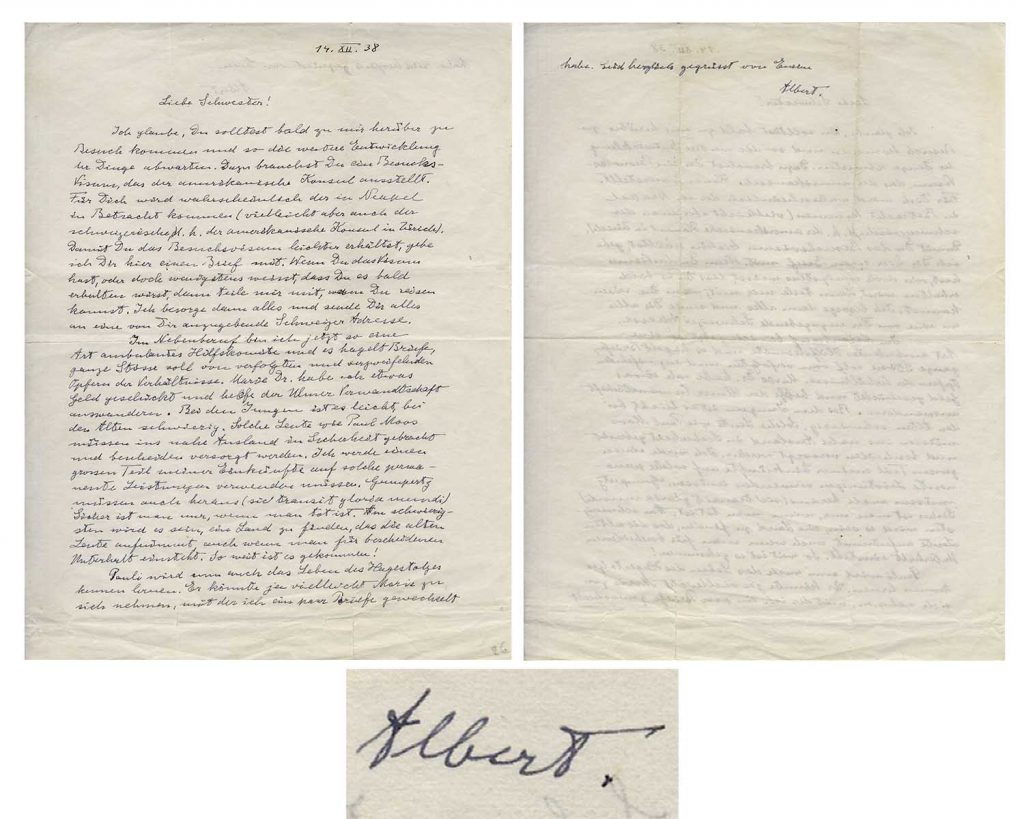 14. XII. 38
Liebe Schwester!
Ich glaube, Du solltest bald zu mir herüber zu
Besuch kommen und so die weitere Entwicklung
der Dinge abwarten. Dazu brauchst Du ein Besuchs-
Visum, das der amerikanische Konsul ausstellt.
Für Dich wird wahrscheinlich der in Neapel
in Betracht kommen (vielleicht aber auch der
schweizerische d. h. der amerikanische Konsul in Zürich).
Damit Du das Besuchsvisum leichter erhältst, gebe
ich Dir hier einen Brief mit. Wenn Du das Visum
hast, oder doch wenigstens weisst, dass Du es bald
erhalten wirst, dann teile mir mit, wann Du reisen
kannst. Ich besorge dann alles und sende Dir alles
an eine von Dir anzugebende Schweizer Adresse.
Im Nebenberuf bin ich jetzt so eine
Art ambulantes Hilfskomite und es hagelt Briefe,
ganze Stösse voll von verfolgten und verzweifelnden
Opfern der Verhältnisse. Marie Dr. habe ich etwas
Geld geschickt und helfe der Ulmer Verwandtschaft
auswandern. Bei den Jungen ist es leicht, bei
den Alten schwierig. Solche Leute wie Paul Moos
müssen ins nahe Ausland in Sicherheit gebracht
und bescheiden versorgt werden. Ich werde einen
grossen Teil meiner Einkünfte auf solche perma-
nente Leistungen verwenden müssen. Gumpertz
müssen auch heraus (sic transit gloria mundi)
Sicher ist man nur, wenn man tot ist. Am schwierig-
sten wird es sein, ein Land zu finden, das die alten
Leute aufnimmt auch wenn man für bescheidenen
Unterhalt einsteht. So weit ist es gekommen!
Pauli wird nun auch das Leben des Hagestolzes
kennen lernen. Er könnte ja vielleicht Marie zu
sich nehmen, mit der ich ein paar Briefe gewechselt
26
habe. Seid herzlich gegrüsst von Eurem
Albert.
Albert.